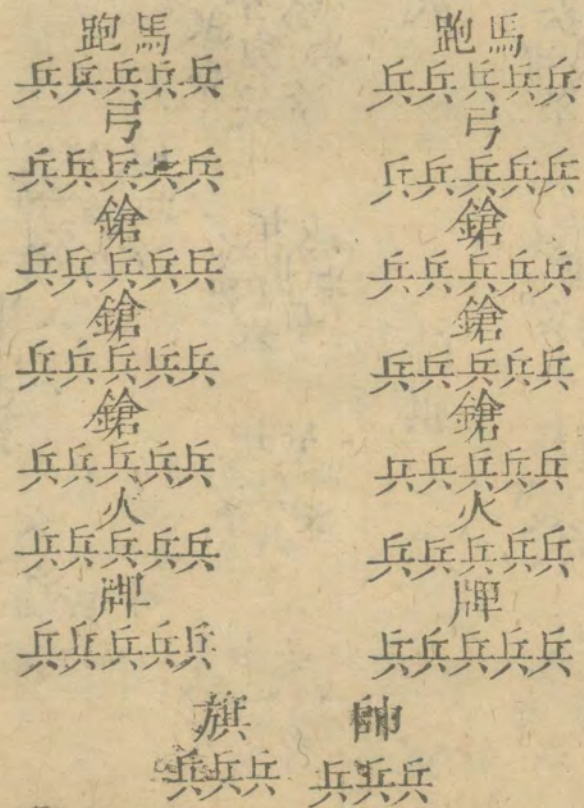 馬跑
兵兵兵兵兵
弓
兵兵兵兵兵
鎗
兵兵兵兵兵
鎗
兵兵兵兵兵
鎗
兵兵兵兵兵
火
兵兵兵兵兵
牌
兵兵兵兵兵
馬跑
兵兵兵兵兵
弓
兵兵兵兵兵
鎗
兵兵兵兵兵
鎗
兵兵兵兵兵
鎗
兵兵兵兵兵
火
兵兵兵兵兵
牌
兵兵兵兵兵
帥旗
兵兵兵 兵兵兵